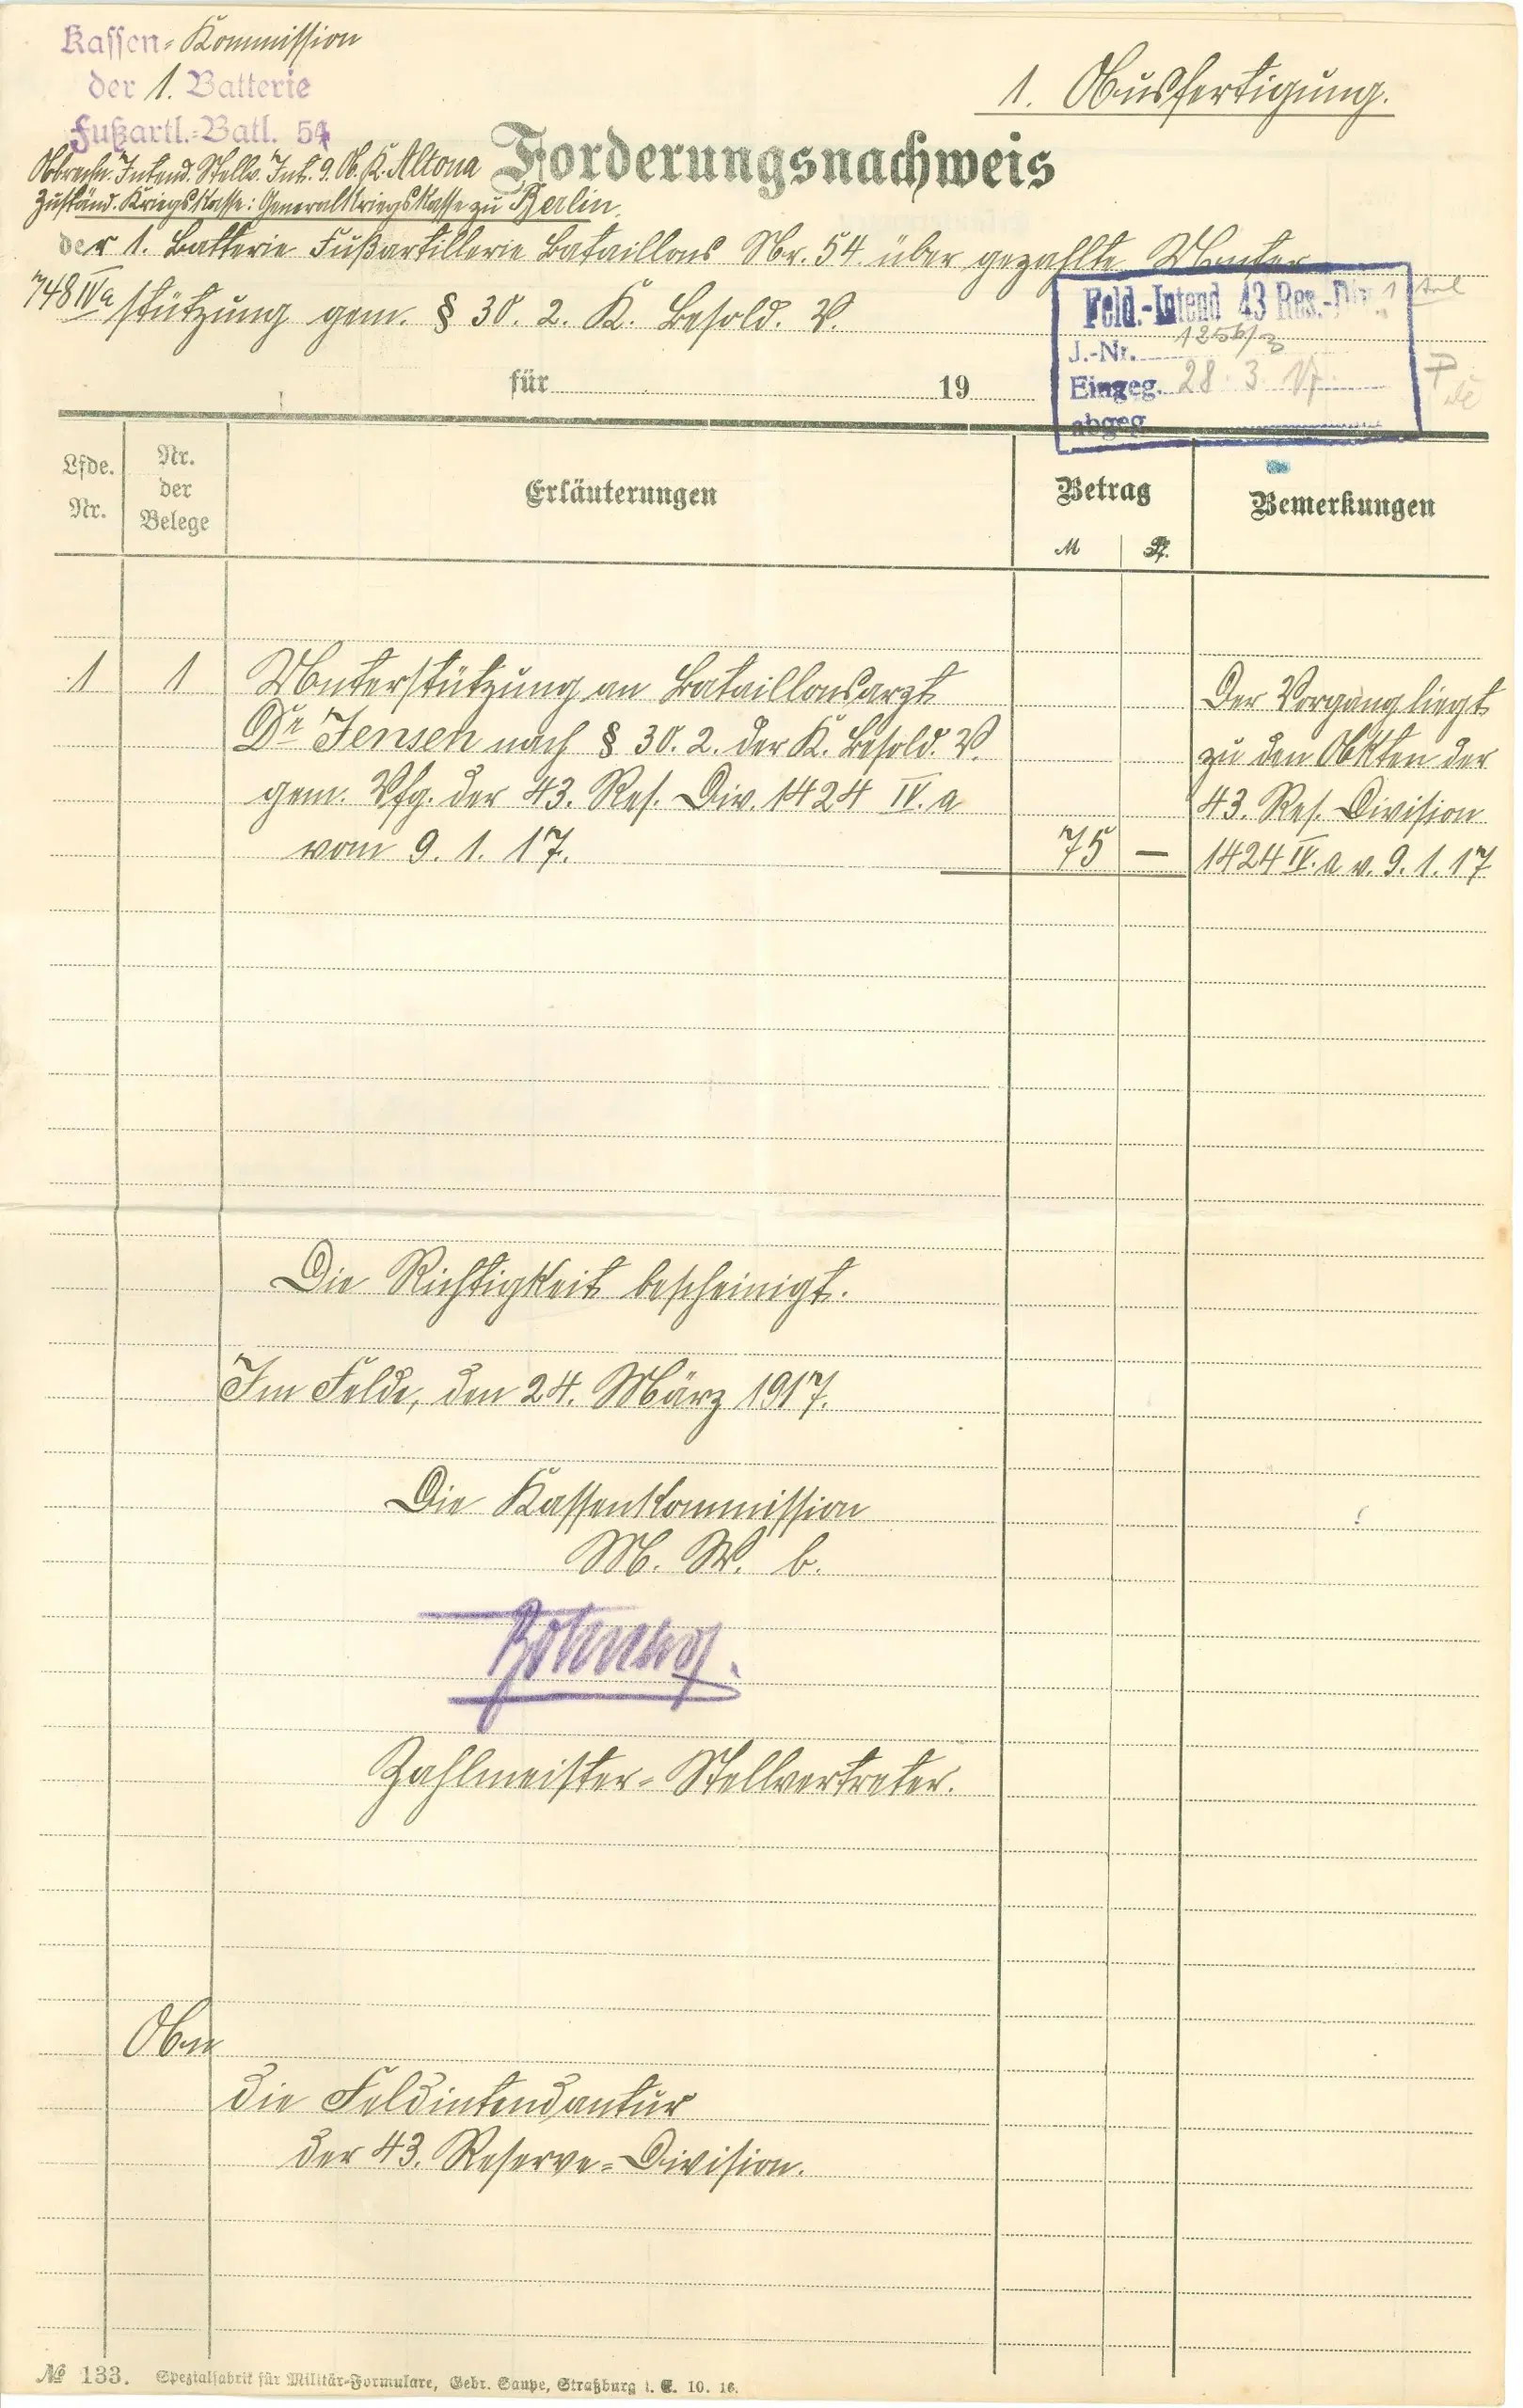 Kassen-Kommission
der 1. Batterie
Fußartl.-Batl. 54
1. Ausfertigung.
Abrechn. Intend. Stellv. Int. 9. A. K. Altona
Forderungsnachweis
Zuständ. Kriegskasse: Generalkriegskasse zu Berlin
der 1. Batterie Fußartillerie Bataillons Nr. 54 über gezahlte Unter
748 IVa stützung gem. § 30. 2. K. Besold. V.
Feld.-Intend 43 Res.-Div.
J.-Nr. 1256/3
Eingeg. 28. 3. 17.
abgeg.
für 19
Lfde. Nr.
Nr. der Belege
Erläuterungen
Betrag
M Pf.
Bemerkungen
1 1 Unterstützung an Bataillonsarzt Der Vorgang liegt
Dr Jensen nach § 30. 2. der K. Besold. V. zu den Akten der
gem. Vfg. der 43. Res. Div. 1424 IV. a 43. Res. Division
vom 9. 1. 17. 75 — 1424 IV. a v. 9. 1. 17
Die Richtigkeit bescheinigt.
Im Felde, den 24. März 1917.
Die Kassenkommission
M. W. b.
Zahlmeister-Stellvertreter.
An
die Feldintendantur
der 43. Reserve-Division.
№ 133. Spezialfabrik für Militär-Formulare, Gebr. Saupe, Straßburg i. E. 10. 16.